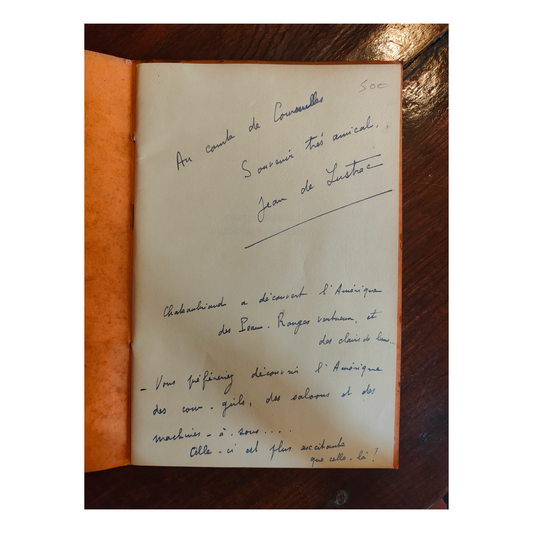 500
Au comte de Courseulles
Souvenir très amical,
Jean de Lustrac
Chateaubriand a découvert l'Amérique
des Peaux-Rouges vertueux, et
des clairs de lune...
- Vous préférerez découvrir l'Amérique
des cow-girls, des saloons et des
machines-à-sous....
Celle-ci est plus excitante
que celle-là?